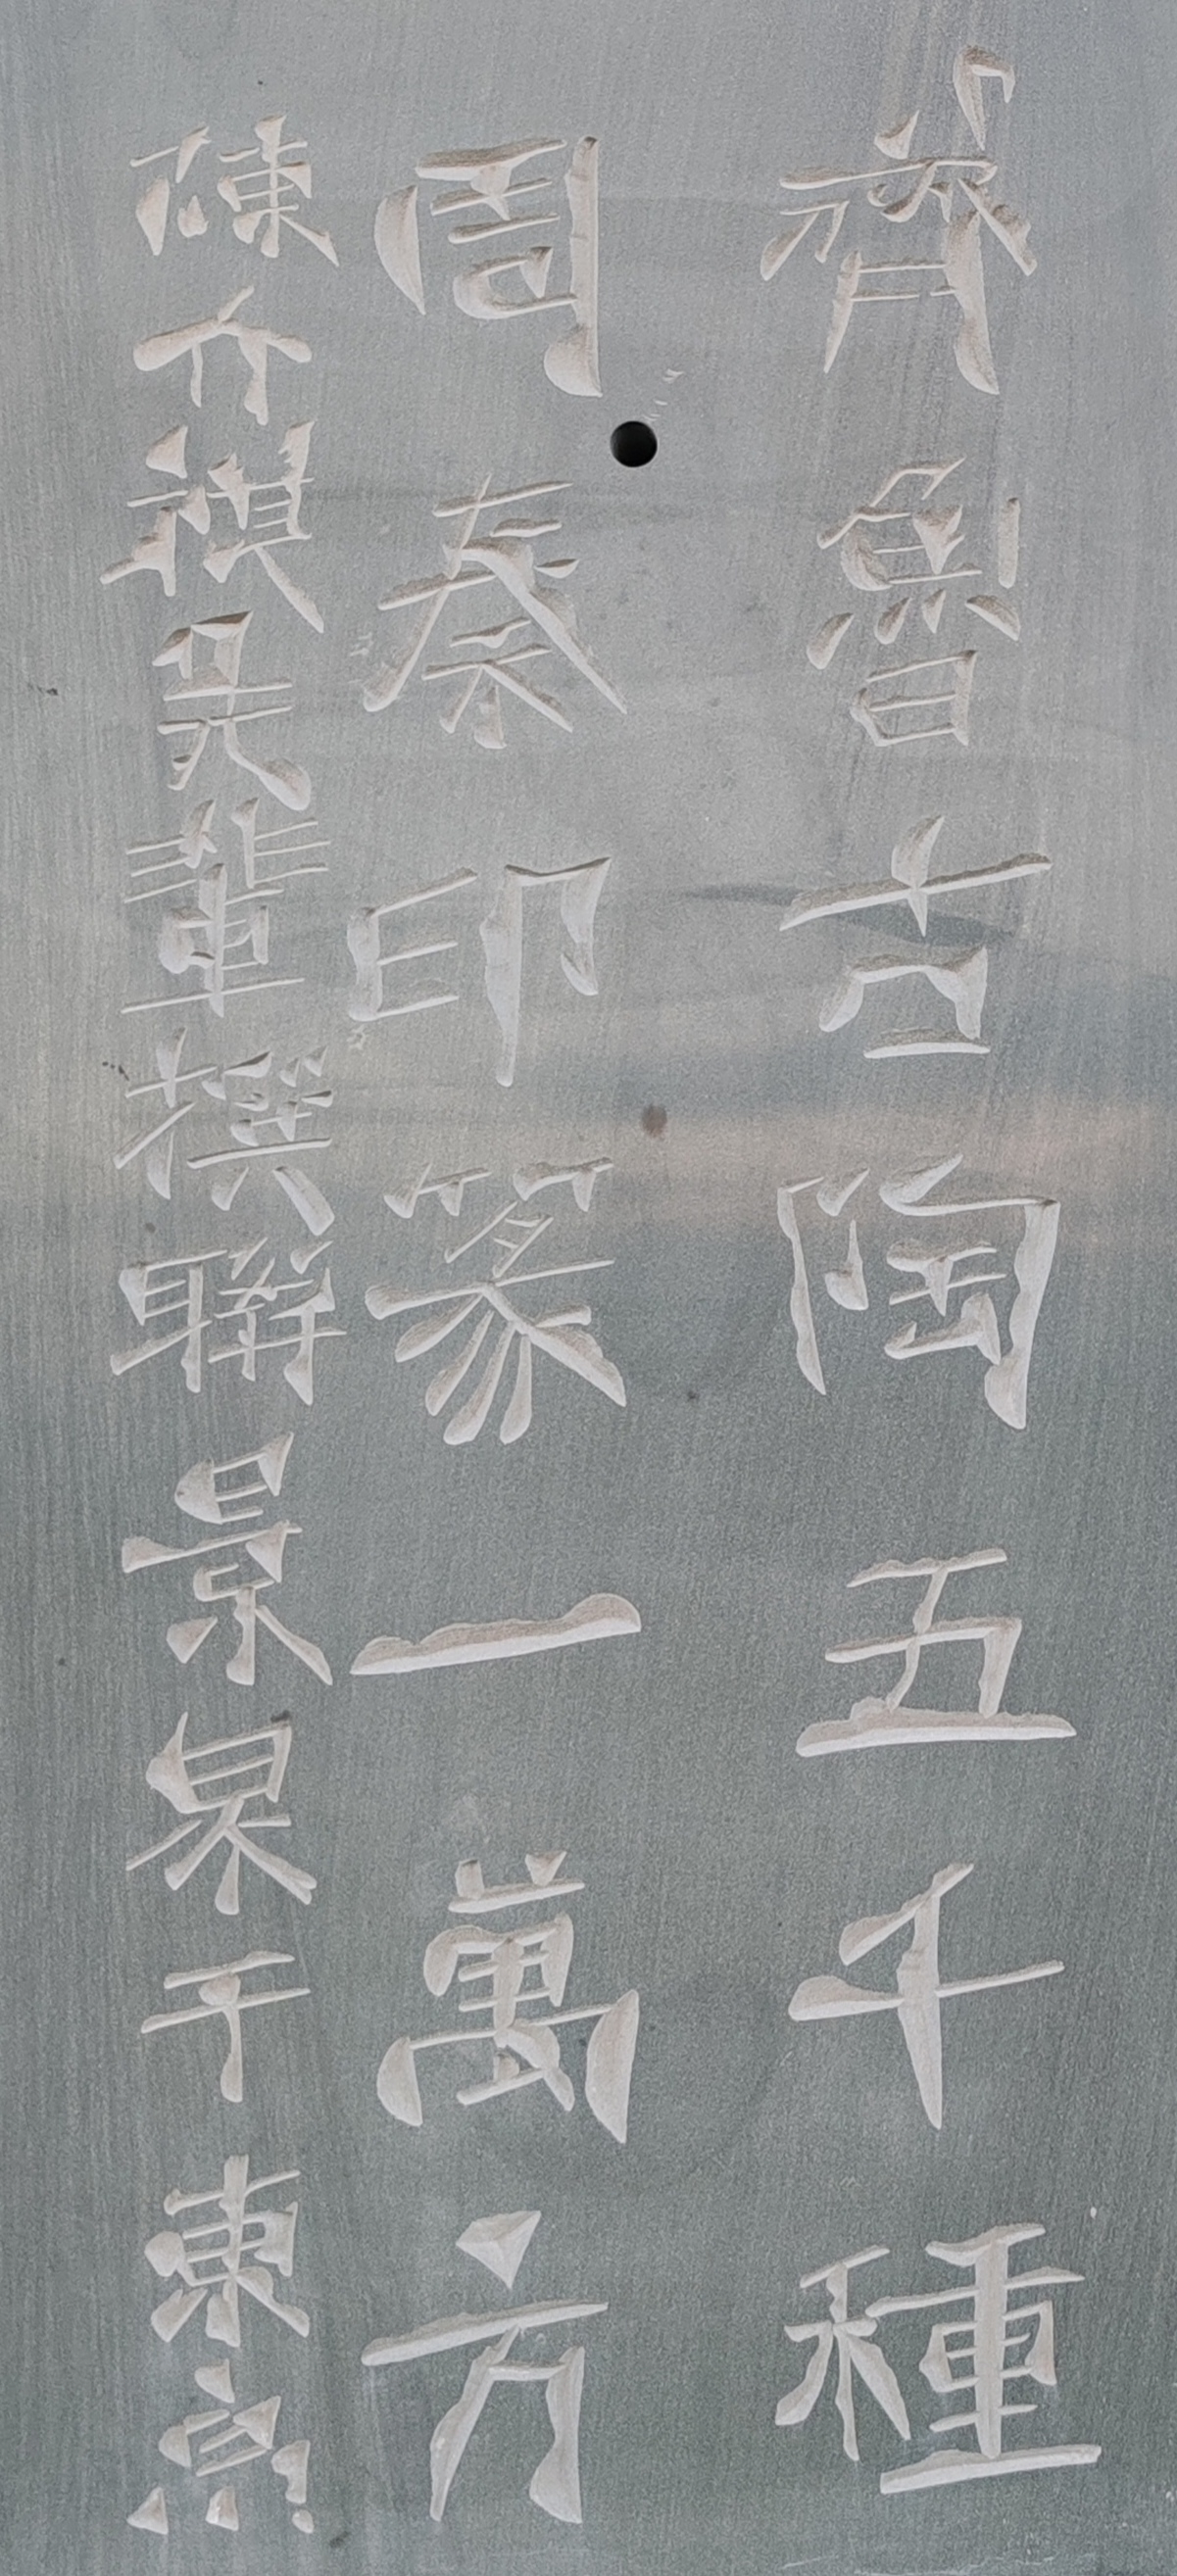 齊魯古陶五千種
周秦印篆一萬方
陳介祺先輩撰聯景泉于東京